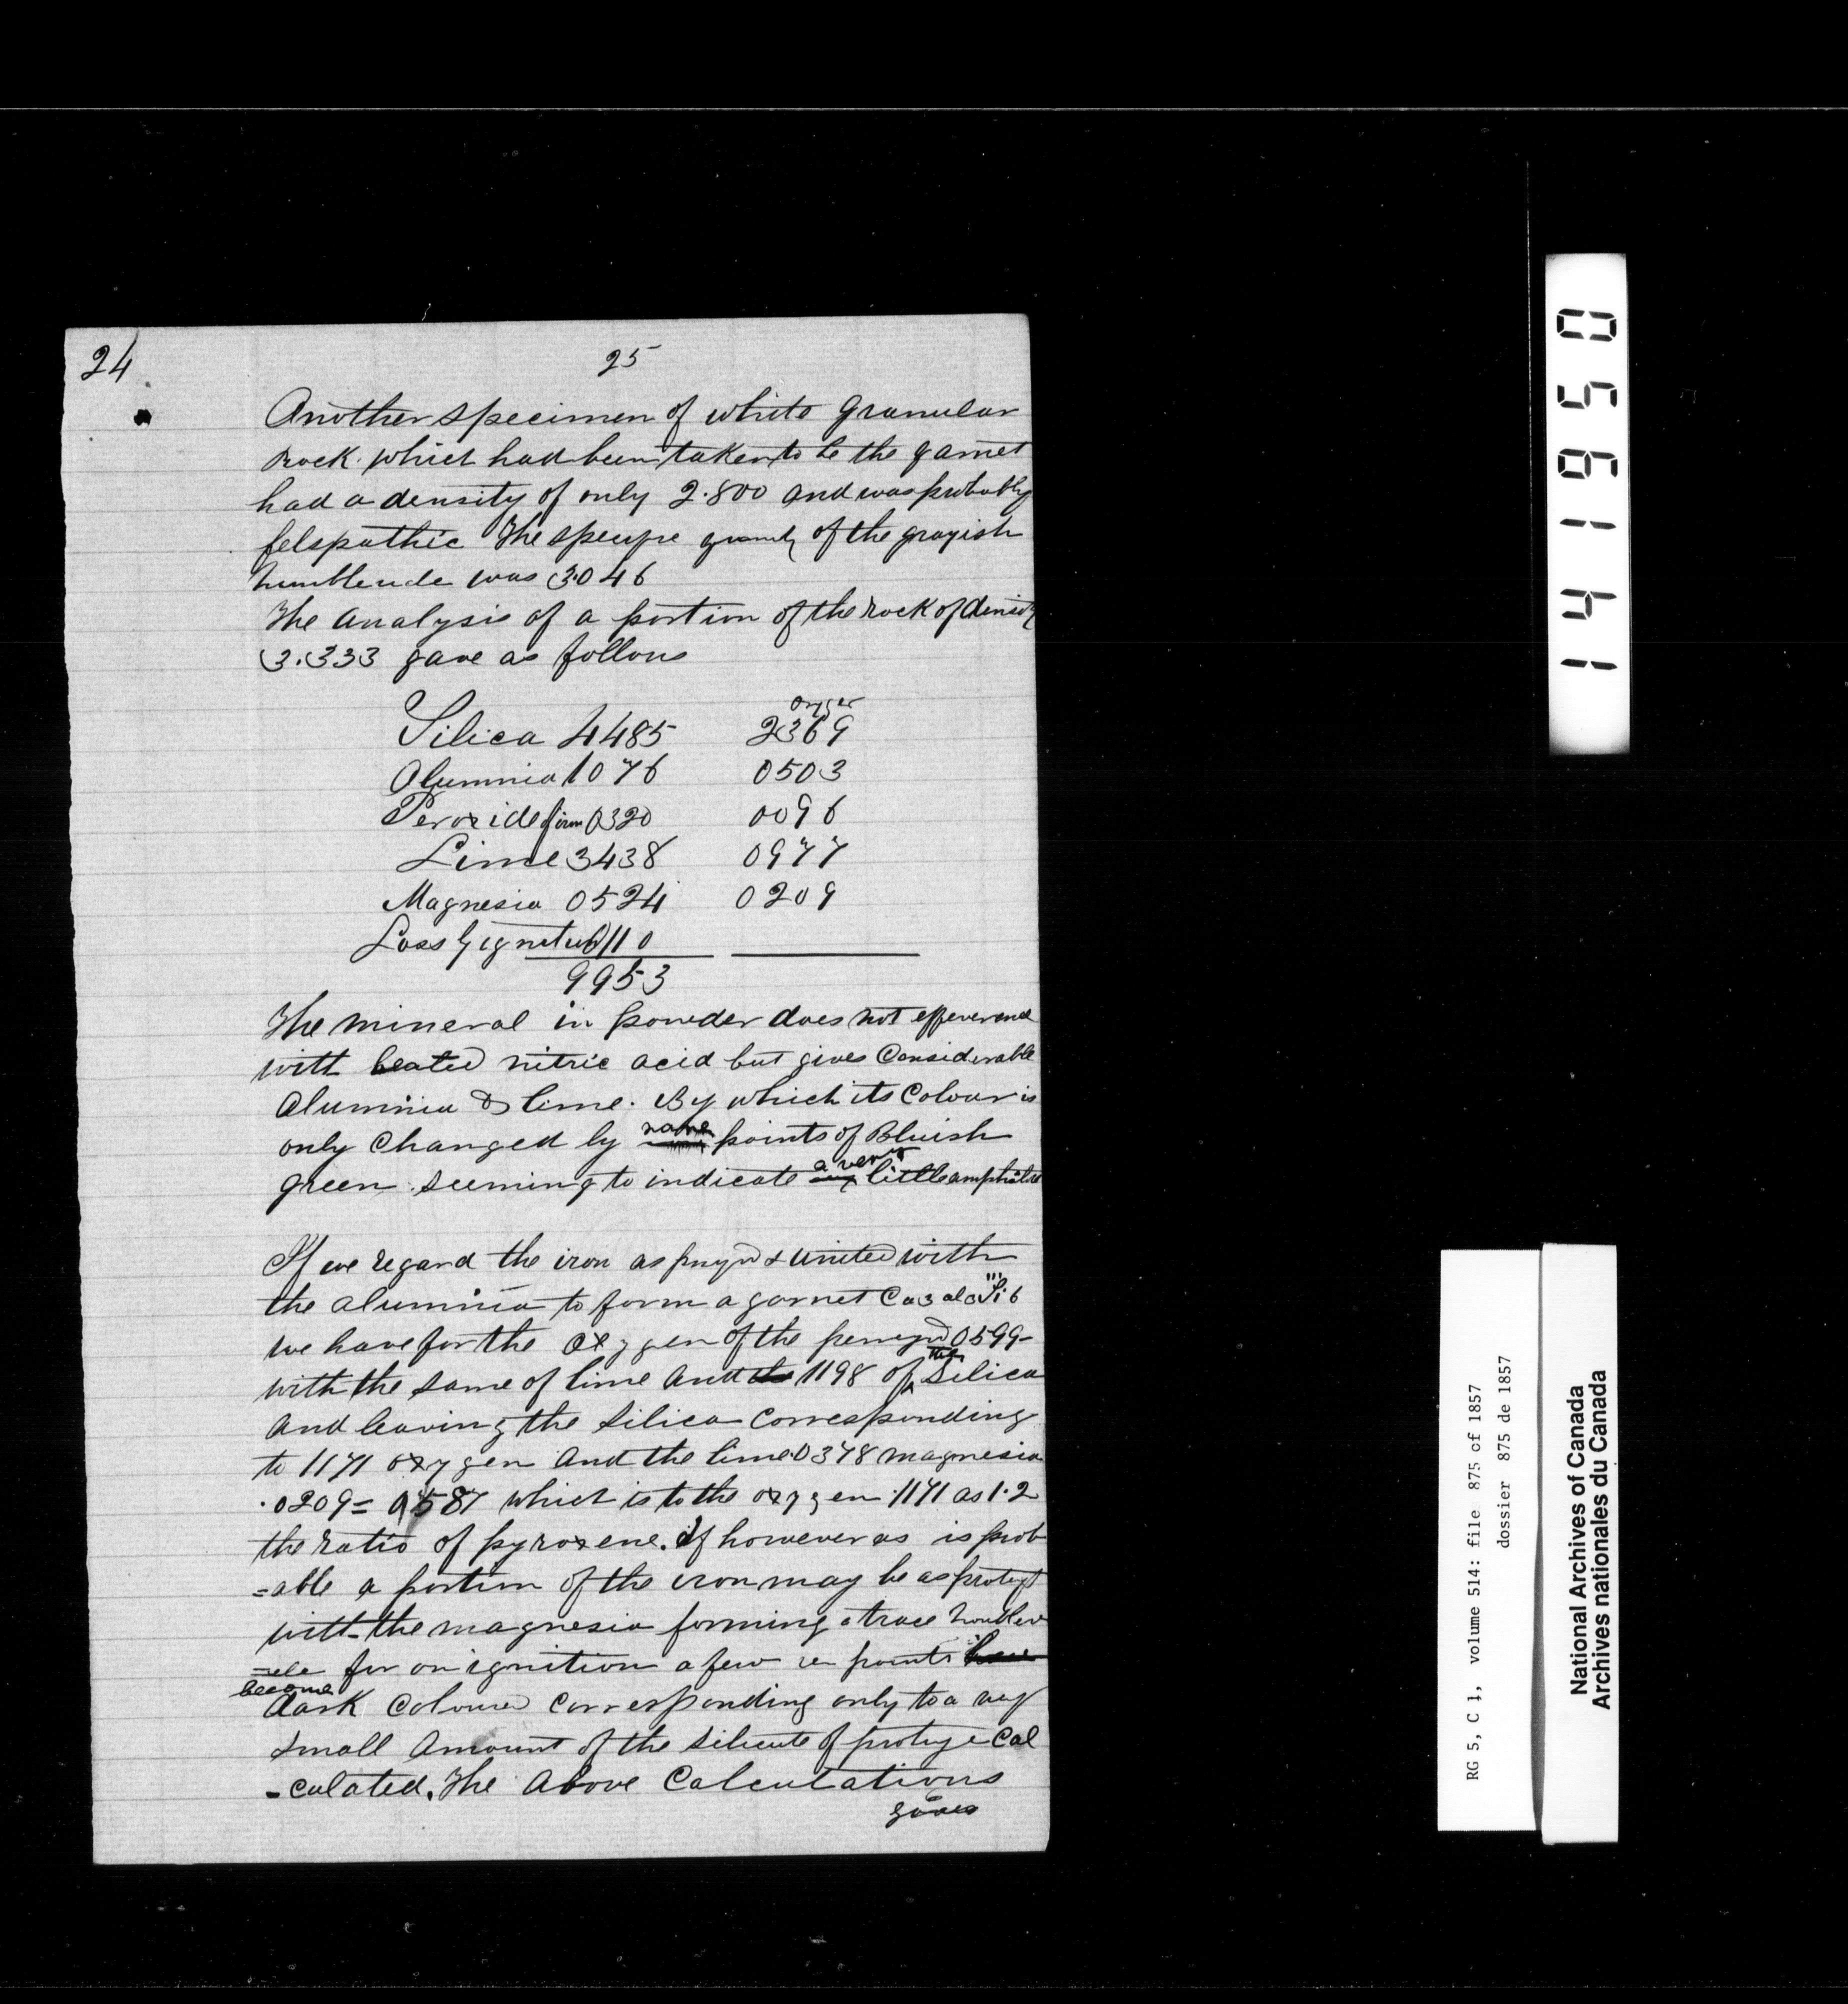 24
25
Another specimen of white granular
rock which had been taken to be the garnet
had a density of only 2.800 and was probably
felspathic The gravity of the grayish
was 3.046
The analysis of a portion of the rock of density
3.333 gave as follows
Oxygen
Silica 4485 2369
Alumnia 1076 0503
Peroxide of iron 0320 0096
Lime 3438 0977
Magnesia 0524 0209
Loss by 0110
9953
The mineral in powder does not
with heated nitric acid but gives Considerable
Alumnia & lime. By which its Colour is
only Changed by points of Bluish
green seeming to indicate a very little
If we regard the iron as & united with
the alumnia to form a garnet
we have for the oxygen of the 0599-
with the same of lime and the 1198 of the Silica
and leaving the silica corresponding
to 1171 oxygen and the lime 0378 magnesia
.0209 = 0587 which is to the oxygen .1171 as 1.2
the ratio of pyroxene. if however as is prob
=able a portion of the iron may be as
with the magnesia forming a trace
for on ignition a few points
become
dark coloured corresponding only to a very
small amount of the of Cal
-culated. The Above Calculations
gives
141950
RG 5, C 1, volume 514: file 875 of 1857
dossier 875 de 1857
National Archives of Canada
Archives nationales du Canada